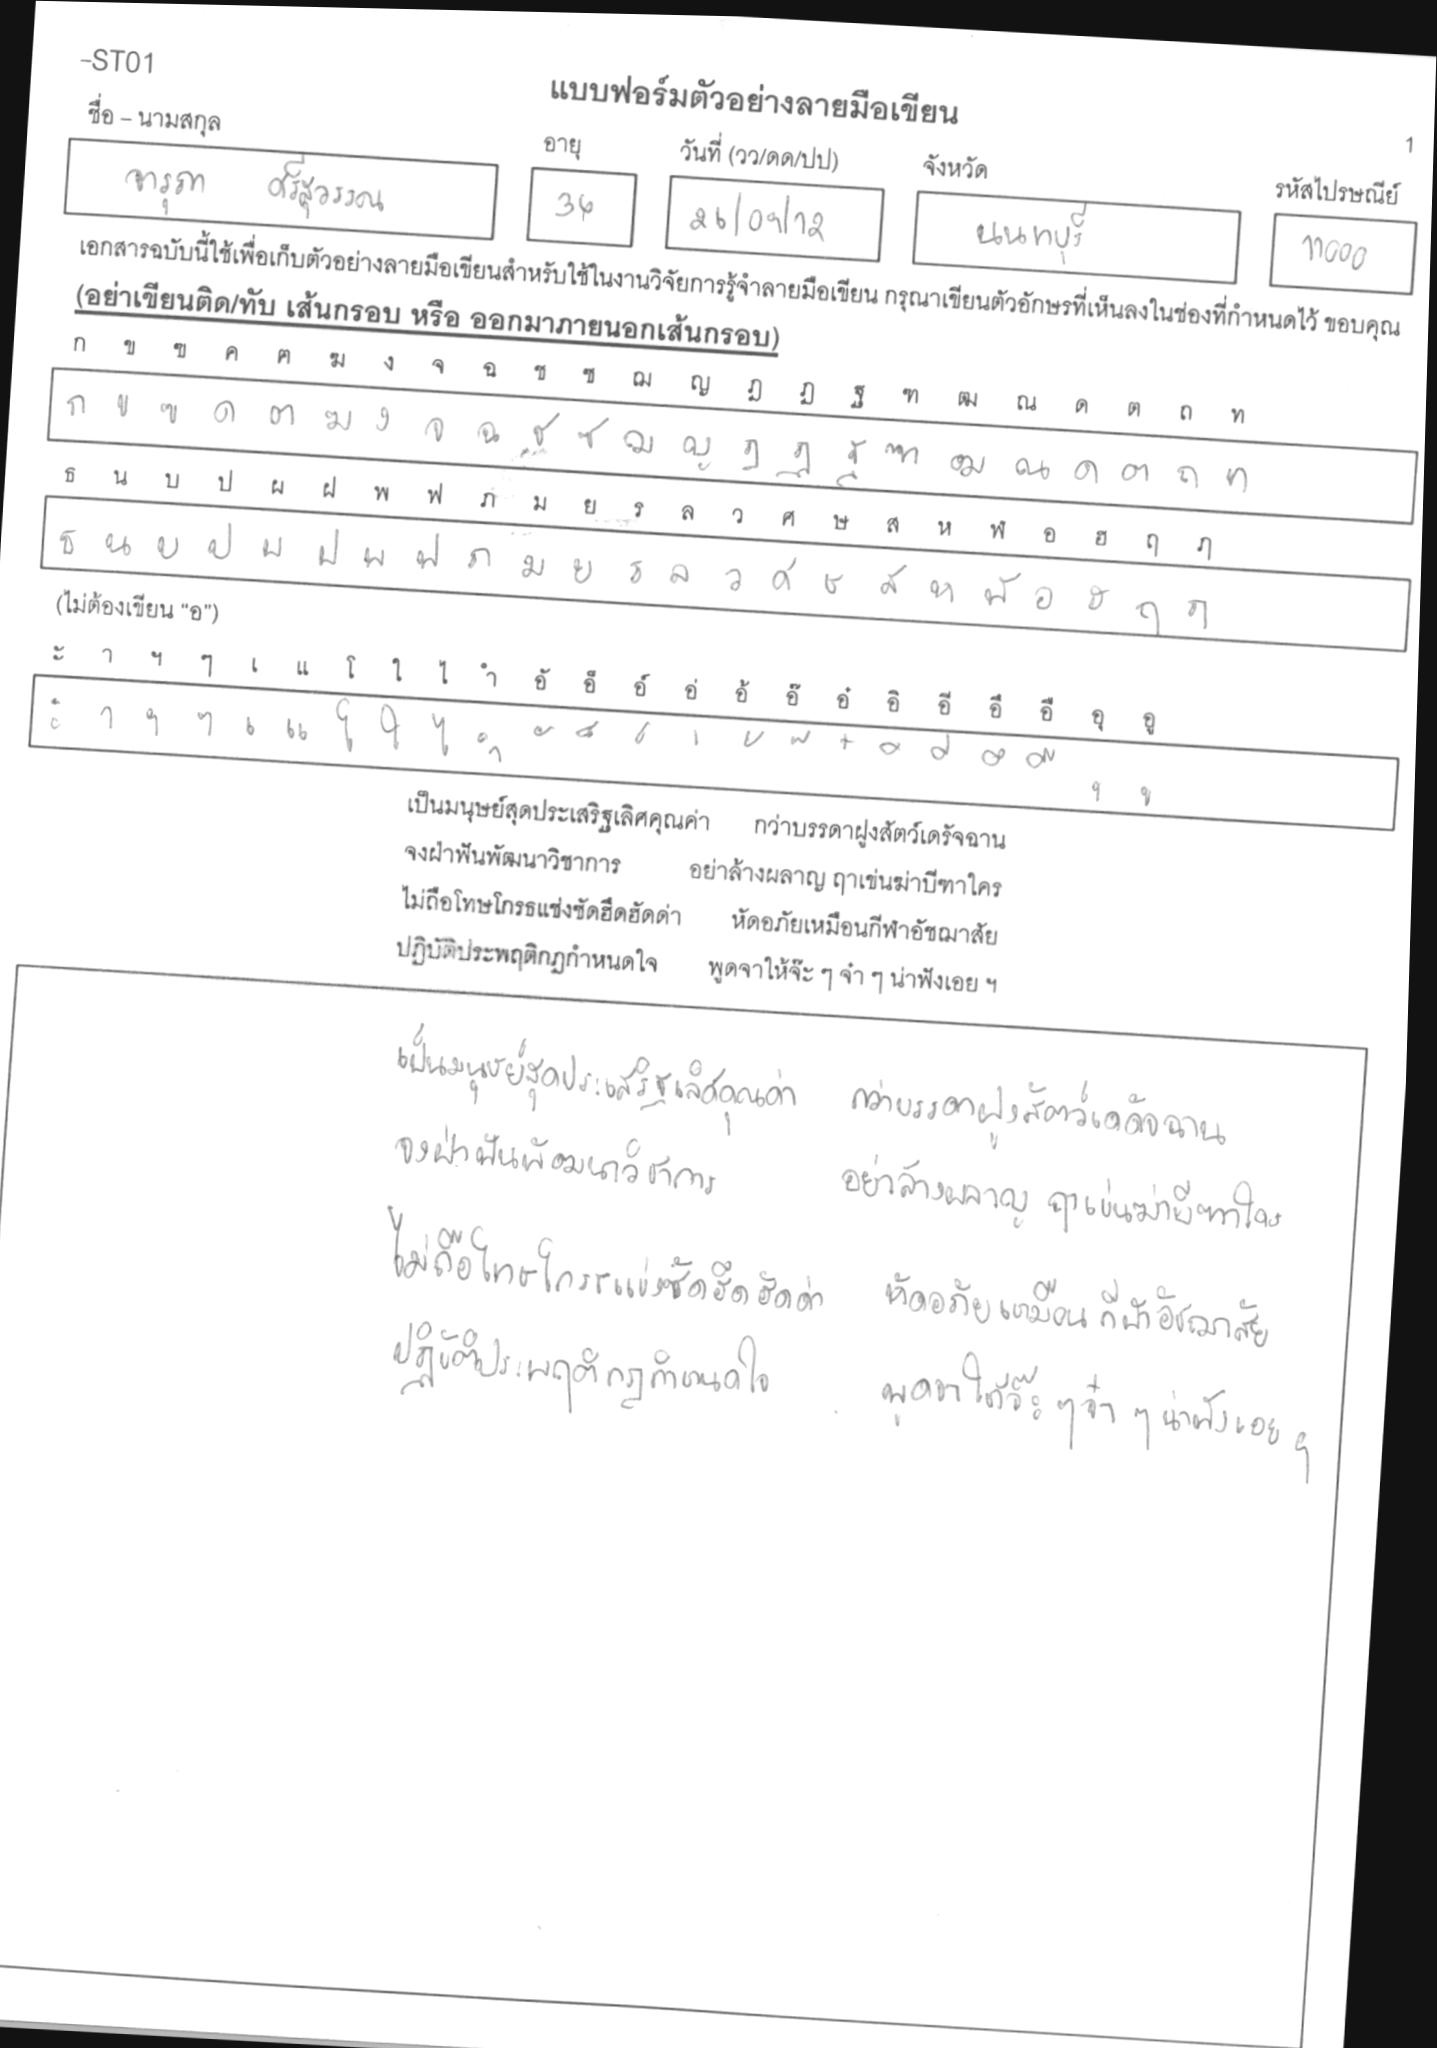 -ST01
แบบฟอร์มตัวอย่างลายมือเขียน
1
ชื่อ – นามสกุล อายุ วันที่ (วว/ดด/ปป) จังหวัด รหัสไปรษณีย์
จารุภา ศรีสุวรรณ 34 26/09/12 นนทบุรี 11000
เอกสารฉบับนี้ใช้เพื่อเก็บตัวอย่างลายมือเขียนสำหรับใช้ในงานวิจัยการรู้จำลายมือเขียน กรุณาเขียนตัวอักษรที่เห็นลงในช่องที่กำหนดไว้ ขอบคุณ
(อย่าเขียนติด/ทับ เส้นกรอบ หรือ ออกมาภายนอกเส้นกรอบ)
ก ข ฃ ค ฅ ฆ ง จ ฉ ช ซ ฌ ญ ฎ ฏ ฐ ฑ ฒ ณ ด ต ถ ท
ก ข ฃ ค ฅ ฆ ง จ ฉ ช ซ ฌ ญ ฎ ฏ ฐ ฑ ฒ ณ ด ต ถ ท
ธ น บ ป ผ ฝ พ ฟ ภ ม ย ร ล ว ศ ษ ส ห ฬ อ ฮ ฤ ฦ
ธ น บ ป ผ ฝ พ ฟ ภ ม ย ร ล ว ศ ษ ส ห ฬ อ ฮ ฤ ฦ
(ไม่ต้องเขียน “อ”)
ะ า ฯ ๆ เ แ โ ใ ไ ำ อั อ็ อ์ อ่ อ้ อ๊ อ๋ อิ อี อึ อื อุ อู
ะ า ฯ ๆ เ แ โ ใ ไ ำ ั ็ ์ ่ ้ ๊ ๋ ิ ี ึ ื ุ ู
เป็นมนุษย์สุดประเสริฐเลิศคุณค่า กว่าบรรดาฝูงสัตว์เดรัจฉาน
จงฝ่าฟันพัฒนาวิชาการ อย่าล้างผลาญ ฤาเข่นฆ่าบีฑาใคร
ไม่ถือโทษโกรธแช่งซัดฮึดฮัดด่า หัดอภัยเหมือนกีฬาอัชฌาสัย
ปฏิบัติประพฤติกฎกำหนดใจ พูดจาให้จ๊ะ ๆ จ๋า ๆ น่าฟังเอย ฯ
เป็นมนุษย์สุดประเสริฐเลิศคุณค่า กว่าบรรดาฝูงสัตว์เดรัจฉาน
จงฝ่าฟันพัฒนาวิชาการ อย่าล้างผลาญ ฤาเข่นฆ่าบีฑาใคร
ไม่ถือโทษโกรธแช่งซัดฮึดฮัดด่า หัดอภัยเหมือนกีฬาอัชฌาสัย
ปฏิบัติประพฤติกฎกำหนดใจ พูดจาให้จ๊ะ ๆ จ๋า ๆ น่าฟังเอย ฯ